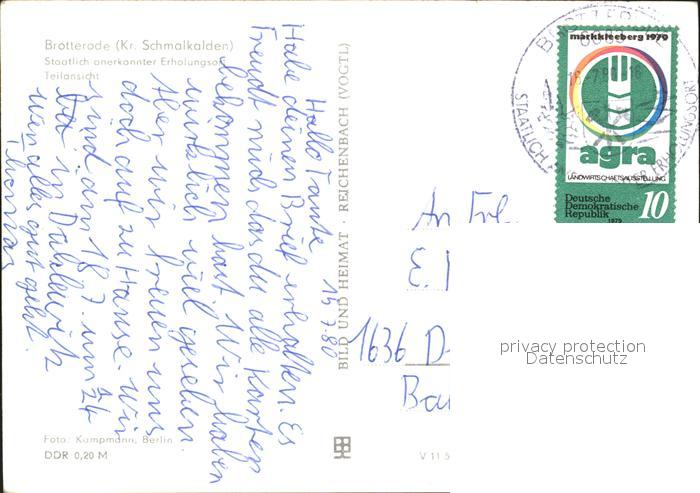 Brotterode (Kr. Schmalkalden)
Staatlich anerkannter Erholungsort
Teilansicht
Hallo Tante 15.7.80
Habe deinen Brief erhalten. Es
freudt mich, das du alle Karten
bekommen hast. Wir haben
wirklich viel gesehen.
Aber wir freuen uns
doch auf zu Hause. Wir
sind am 18.7. um
in Dahlewitz
wen alles gut geht.
Thomas
BILD UND HEIMAT · REICHENBACH (VOGTL)
Foto: Kampmann, Berlin
DDR 0,20 M
V 11 5
An Frl.
E.
1636 D
markkleeberg 1979
agra
LANDWIRTSCHAFTSAUSSTELLUNG
Deutsche
Demokratische
Republik
10
1979
STAATLICH
privacy protection
Datenschutz